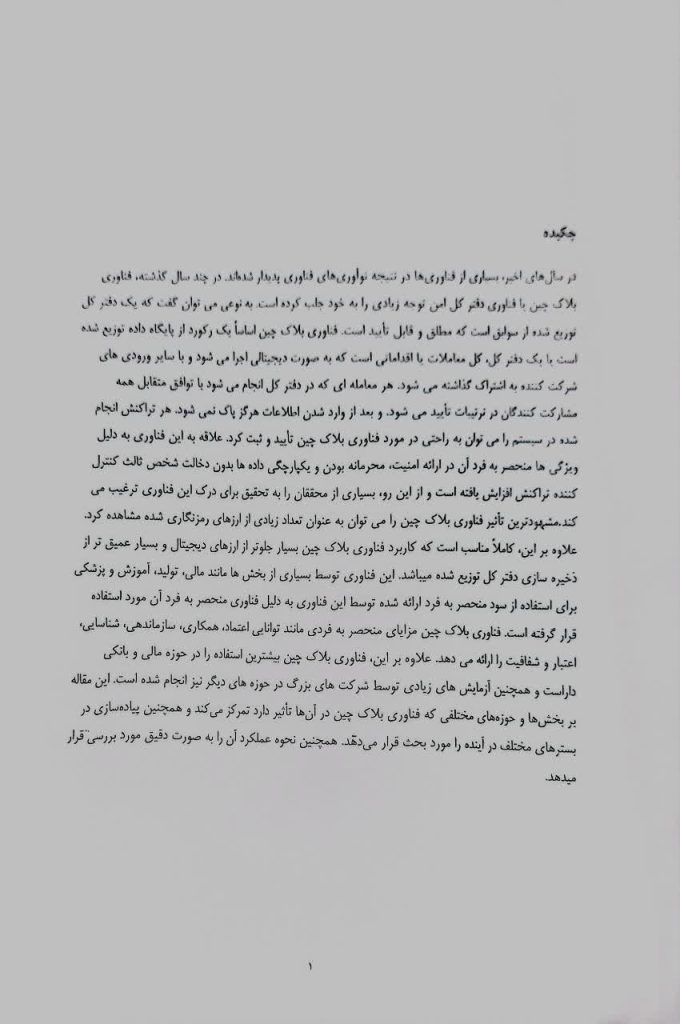 چکیده
در سال‌های اخیر، بسیاری از فناوری‌ها در نتیجه نوآوری‌های فناوری پدیدار شده‌اند. در چند سال گذشته، فناوری
بلاک چین یا فناوری دفتر کل امن توجه زیادی را به خود جلب کرده است. به نوعی می توان گفت که یک دفتر کل
توزیع شده از سوابق است که مطلق و قابل تأیید است. فناوری بلاک چین اساساً یک رکورد از پایگاه داده توزیع شده
است یا یک دفتر کل، کل معاملات یا اقداماتی است که به صورت دیجیتالی اجرا می شود و با سایر ورودی های
شرکت کننده به اشتراک گذاشته می شود. هر معامله ای که در دفتر کل انجام می شود با توافق متقابل همه
مشارکت کنندگان در ترتیبات تأیید می شود. و بعد از وارد شدن اطلاعات هرگز پاک نمی شود. هر تراکنش انجام
شده در سیستم را می توان به راحتی در مورد فناوری بلاک چین تأیید و ثبت کرد. علاقه به این فناوری به دلیل
ویژگی ها منحصر به فرد آن در ارائه امنیت، محرمانه بودن و یکپارچگی داده ها بدون دخالت شخص ثالث کنترل
کننده تراکنش افزایش یافته است و از این رو، بسیاری از محققان را به تحقیق برای درک این فناوری ترغیب می
کند.مشهودترین تأثیر فناوری بلاک چین را می توان به عنوان تعداد زیادی از ارزهای رمزنگاری شده مشاهده کرد.
علاوه بر این، کاملاً مناسب است که کاربرد فناوری بلاک چین بسیار جلوتر از ارزهای دیجیتال و بسیار عمیق تر از
ذخیره سازی دفتر کل توزیع شده میباشد. این فناوری توسط بسیاری از بخش ها مانند مالی، تولید، آموزش و پزشکی
برای استفاده از سود منحصر به فرد ارائه شده توسط این فناوری به دلیل فناوری منحصر به فرد آن مورد استفاده
قرار گرفته است. فناوری بلاک چین مزایای منحصر به فردی مانند توانایی اعتماد، همکاری، سازماندهی، شناسایی،
اعتبار و شفافیت را ارائه می دهد. علاوه بر این، فناوری بلاک چین بیشترین استفاده را در حوزه مالی و بانکی
داراست و همچنین آزمایش های زیادی توسط شرکت های بزرگ در حوزه های دیگر نیز انجام شده است. این مقاله
بر بخش‌ها و حوزه‌های مختلفی که فناوری بلاک چین در آن‌ها تأثیر دارد تمرکز می‌کند و همچنین پیاده‌سازی در
بسترهای مختلف در آینده را مورد بحث قرار می‌دهد. همچنین نحوه عملکرد آن را به صورت دقیق مورد بررسی قرار
میدهد.
۱